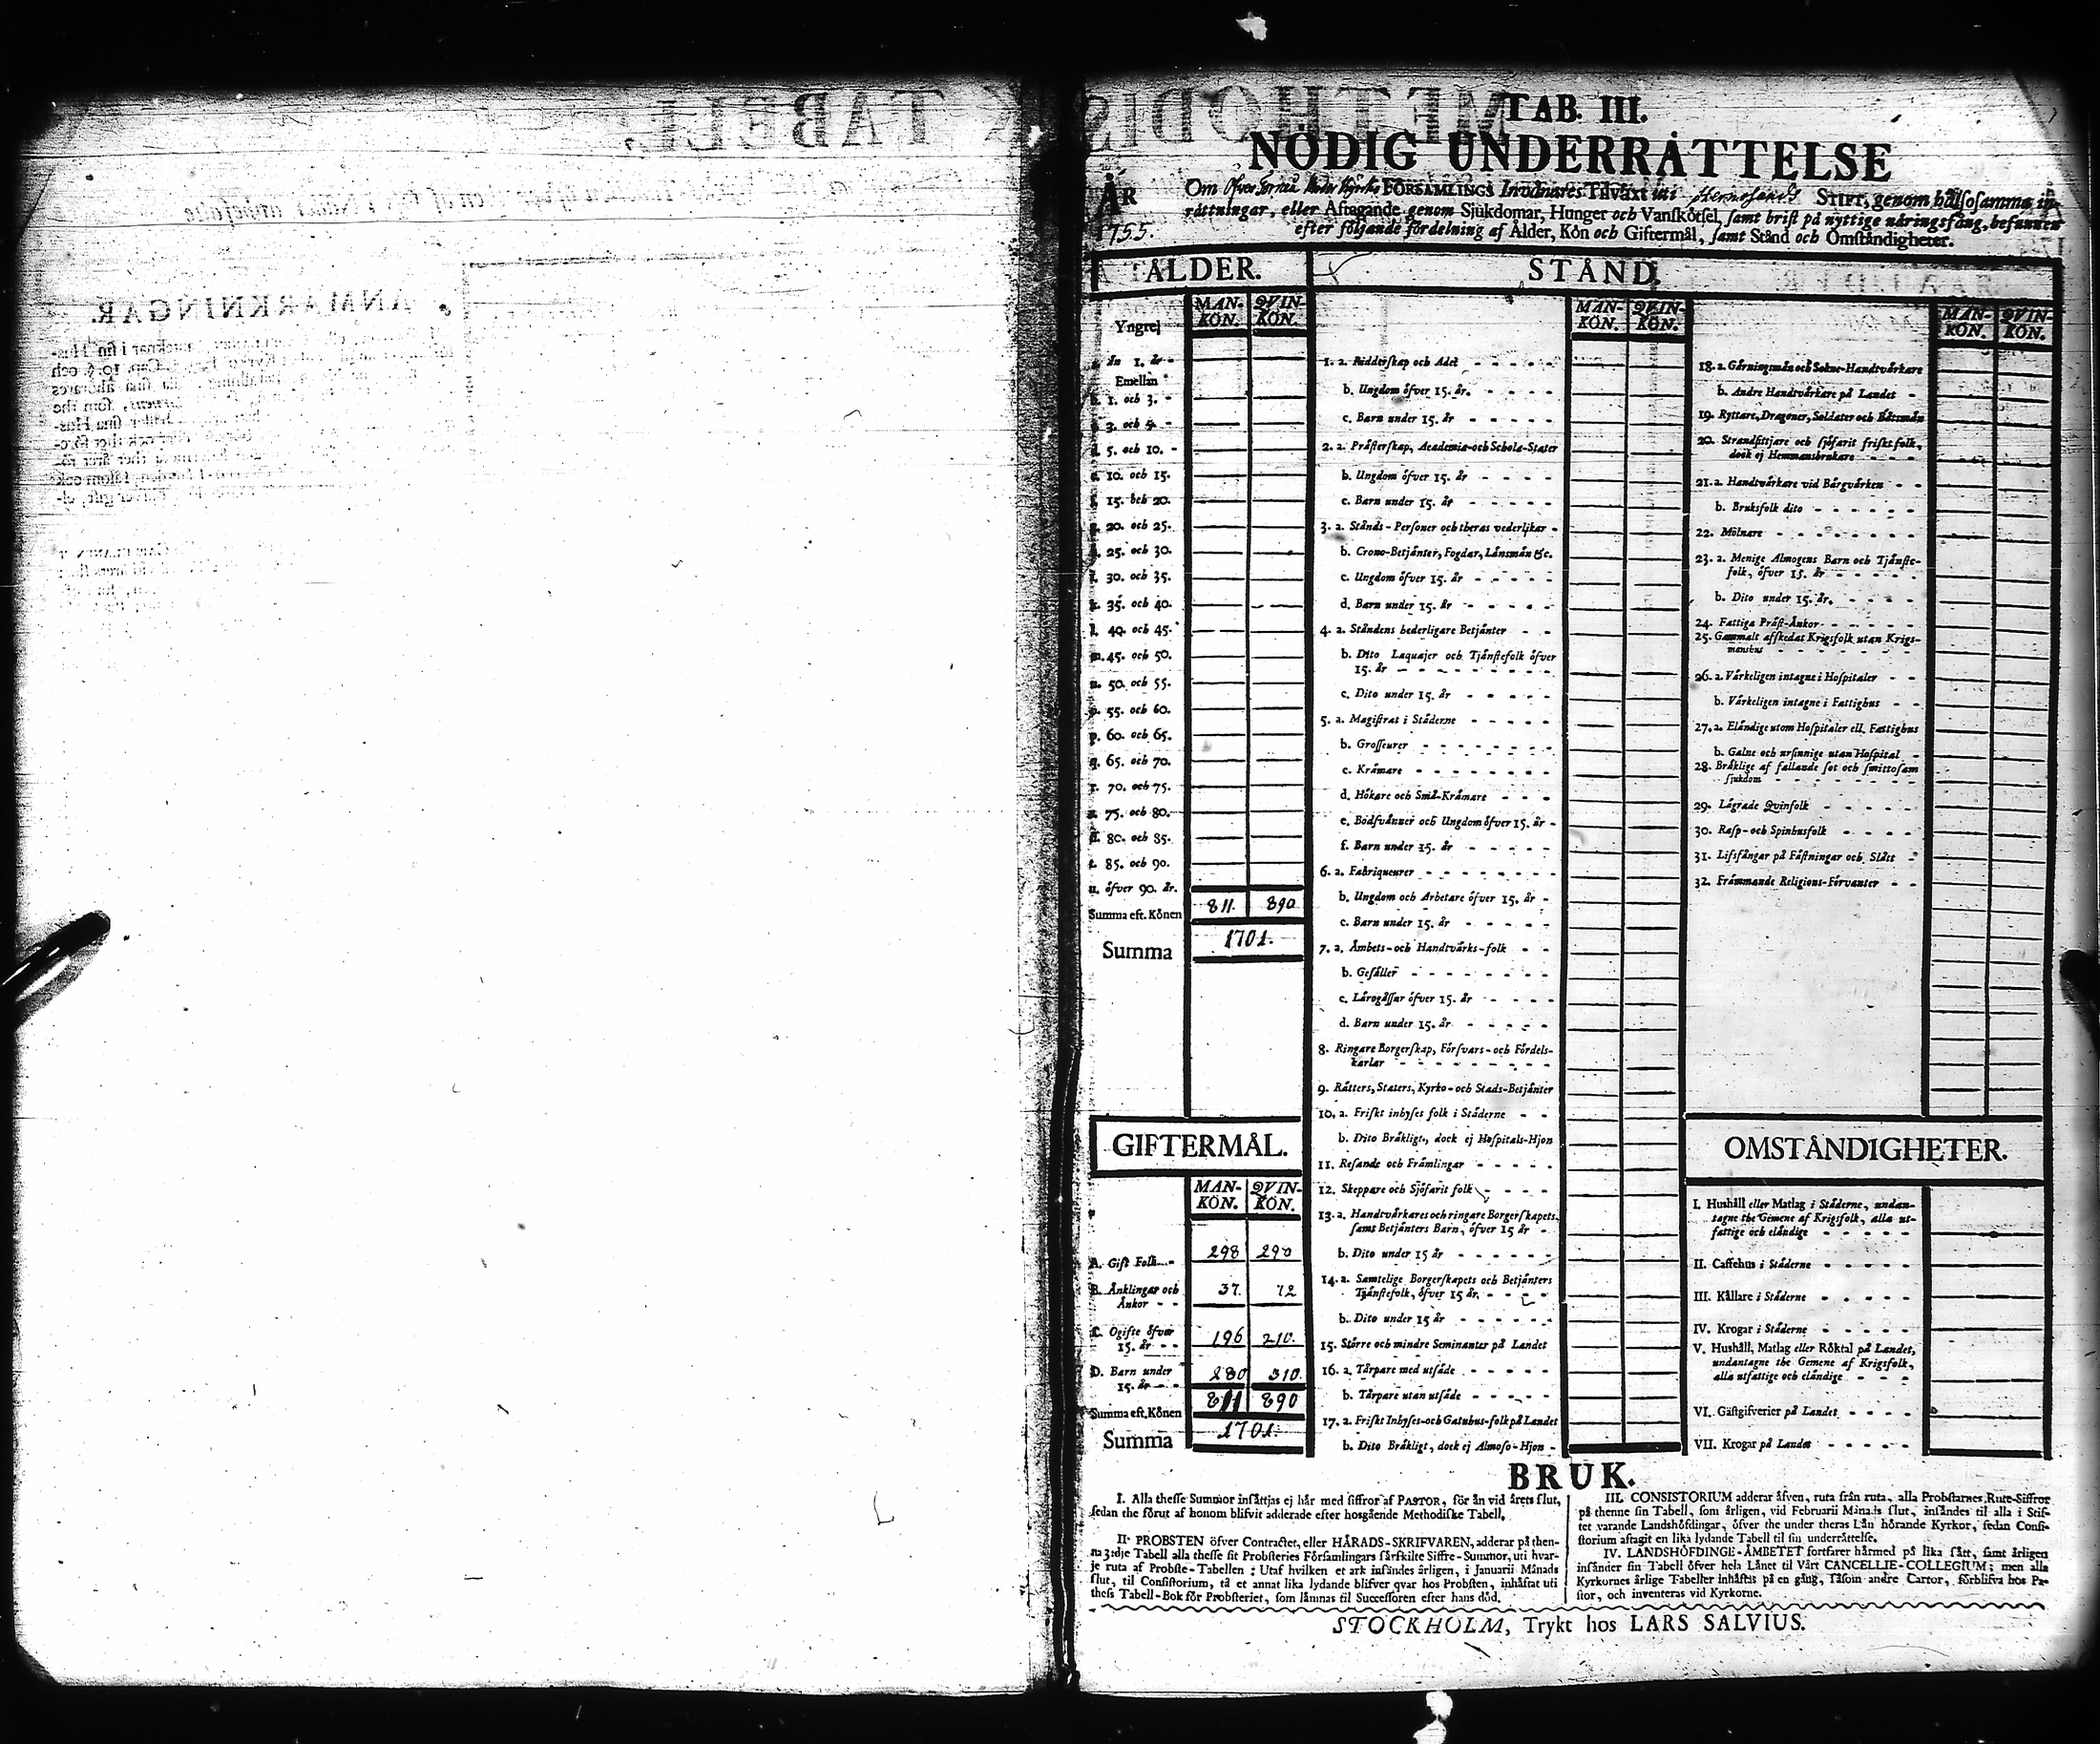 TAB. III.
NÖDIG UNDERRÅTTELSE
ÅR 1755.
Om Öfver Torneå FÖRSAMLINGS Invånares Tilvåxt uti Hernösands STIFT, genom hålsosamma in-
råttningar, eller Aftagande genom Sjukdomar, Hunger och Vanskôtsel, samt brist på nyttige näringsfång, befunnen
efter följande fördelning af Ålder, Kön och Giftermål, samt Stånd och Omständigheter.
ÅLDER.
MAN-KÖN. QVIN-KÖN.
Yngre
än 1. år
Emellan
b. 1. och 3.
c. 3. och 5.
d. 5. och 10.
e. 10. och 15.
f. 15. och 20.
g. 20. och 25.
h. 25. och 30.
i. 30. och 35.
k. 35. och 40.
l. 40. och 45.
m. 45. och 50.
n. 50. och 55.
o. 55. och 60.
p. 60. och 65.
q. 65. och 70.
r. 70. och 75.
s. 75. och 80.
ß. 80. och 85.
t. 85. och 90.
u. öfver 90. år.
Summa eft. Könen 811. 890
Summa 1701.
GIFTERMÅL.
MAN-KÖN. QVIN-KÖN.
A. Gift Folk 298 298
B. Änklingar och
Änkor 37. 72
C. Ogifte öfver
15. år 196 210.
D. Barn under
15. år 280 310.
Summa eft. Könen 811 890
Summa 1701.
STÅND.
MAN-KÖN. QVIN-KÖN.
1. a. Ridderskap och Adel
b. Ungdom öfver 15. år.
c. Barn under 15. år
2. a. Prästerskap, Academiæ-och Scholæ-Stater
b. Ungdom öfver 15. år
c. Barn under 15. år
3. a. Stånds-Personer och theras vederlikar
b. Crono-Betjänter, Fogdar, Länsmän &c.
c. Ungdom öfver 15. år
d. Barn under 15. år
4. a. Ståndens hederligare Betjänter
b. Dito Laquajer och Tjänstefolk öfver
15. år
c. Dito under 15. år
5. a. Magistrat i Städerne
b. Grosseurer
c. Krämare
d. Hökare och Små-Krämare
e. Bodsvänner och Ungdom öfver 15. år
f. Barn under 15. år
6. a. Fabriqueurer
b. Ungdom och Arbetare öfver 15. år
c. Barn under 15. år
7. a. Ämbets-och Handtvärks-folk
b. Gesäller
c. Lärogåssar öfver 15. år
d. Barn under 15. år
8. Ringare Borgerskap, Försvars-och Fördels-
karlar
9. Rätters, Staters, Kyrko-och Stads-Betjänter
10. a. Friskt inhyses folk i Städerne
b. Dito Bräkligt, dock ej Hospitals-Hjon
11. Resande och Främlingar
12. Skeppare och Sjöfarit folk
13. a. Handtvärkares och ringare Borgerskapets,
samt Betjänters Barn, öfver 15 år
b. Dito under 15 år
14. a. Samtelige Borgerskapets och Betjänters
Tjänstefolk, öfver 15 år.
b. Dito under 15 år
15. Större och mindre Seminanter på Landet
16. a. Tårpare med utsäde
b. Tårpare utan utsäde
17. a. Friskt Inhyses-och Gatuhus-folk på Landet
b. Dito Bräkligt, dock ej Almoso-Hjon
MAN-KÖN. QVIN-KÖN.
18. a. Gärningsmän och Sokne-Handtvärkare
b. Andre Handtvärkare på Landet
19. Ryttare, Dragoner, Soldater och Båtsmän
20. Strandsittjare och sjöfarit friskt folk,
dock ej Hemmansbrukare
21. a. Handtvärkare vid Bärgvärken
b. Bruksfolk dito
22. Mölnare
23. a. Menige Almogens Barn och Tjänste-
folk, öfver 15. år
b. Dito under 15. år.
24. Fattiga Präst-Änkor
25. Gammalt affkedat Krigsfolk utan Krigs-
manshus
26. a. Värkeligen intagne i Hospitaler
b. Värkeligen intagne i Fattighus
27. a. Eländige utom Hospitaler ell. Fattighus
b. Galne och ursinnige utan Hospital
28. Bräklige af fallande sot och smittosam
sjukdom
29. Lägrade Qvinfolk
30. Rasp-och Spinhusfolk
31. Lifsfångar på Fästningar och Slått
32. Främmande Religions-Förvanter
OMSTÄNDIGHETER.
I. Hushåll eller Matlag i Städerne, undan-
tagne the Gemene af Krigsfolk, alla ut-
fattige och eländige
II. Caffehus i Städerne
III. Källare i Städerne
IV. Krogar i Städerne
V. Hushåll, Matlag eller Röktal på Landet,
undantagne the Gemene af Krigsfolk,
alla utfattige och eländige
VI. Gästgifverier på Landet
VII. Krogar på Landet
BRUK.
I. Alla thesse Summor insättjas ej här med siffror af PASTOR, för än vid årets slut,
sedan the förut af honom blifvit adderade efter hosgående Methodiske Tabell.
II. PROBSTEN öfver Contractet, eller HÄRADS-SKRIFVAREN, adderar på then-
na 3:dje Tabell alla thesse sit Probsteries Församlingars särskilte Siffre-Summor, uti hvar-
je ruta af Probste-Tabellen: Utaf hvilken et ark insändes årligen, i Januarii Månads
slut, til Consistorium, tå et annat lika lydande blifver qvar hos Probsten, inhäftat uti
thess Tabell-Bok för Probsteriet, som lämnas til Successoren efter hans död.
III. CONSISTORIUM adderar äfven, ruta från ruta, alla Probstarnes Rute-Siffror
på thenne sin Tabell, som årligen, vid Februarii Månads slut, insändes til alla i Stif-
tet varande Landshöfdingar, öfver the under theras Län hörande Kyrkor, sedan Consi-
storium aftagit en lika lydande Tabell til sin underrättelse.
IV. LANDSHÖFDINGE-ÄMBETET fortfarer härmed på lika sätt, samt årligen
insänder sin Tabell öfver hela Länet til Vårt CANCELLIE-COLLEGIUM; men alla
Kyrkornes årlige Tabeller inhäftas på en gång, såsom andre Cartor, förblifva hos Pa-
stor, och inventeras vid Kyrkorne.
STOCKHOLM, Trykt hos LARS SALVIUS.